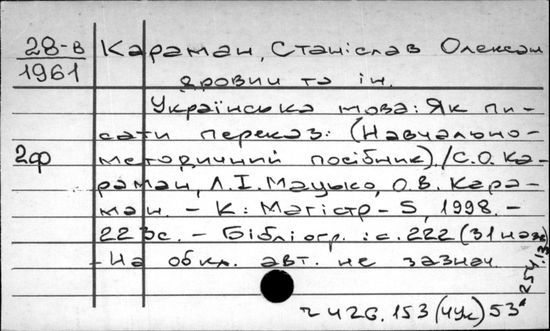 28-в
1961
Караман, Станіслав Олексан
дрович та ін.
Українська мова: Як пи-
сати переказ: (Навчально-
2ф
методичний посібник)/С.О.Ка-
раман, Л.І.Мацько, О.В.Кара-
ман. - К: Магістр-S, 1998. -
223с. - Бібліогр.: с.222 (31 назв)
- На обкл. авт. не зазнач.
254.13
ч 426.153 (4Ук) 53